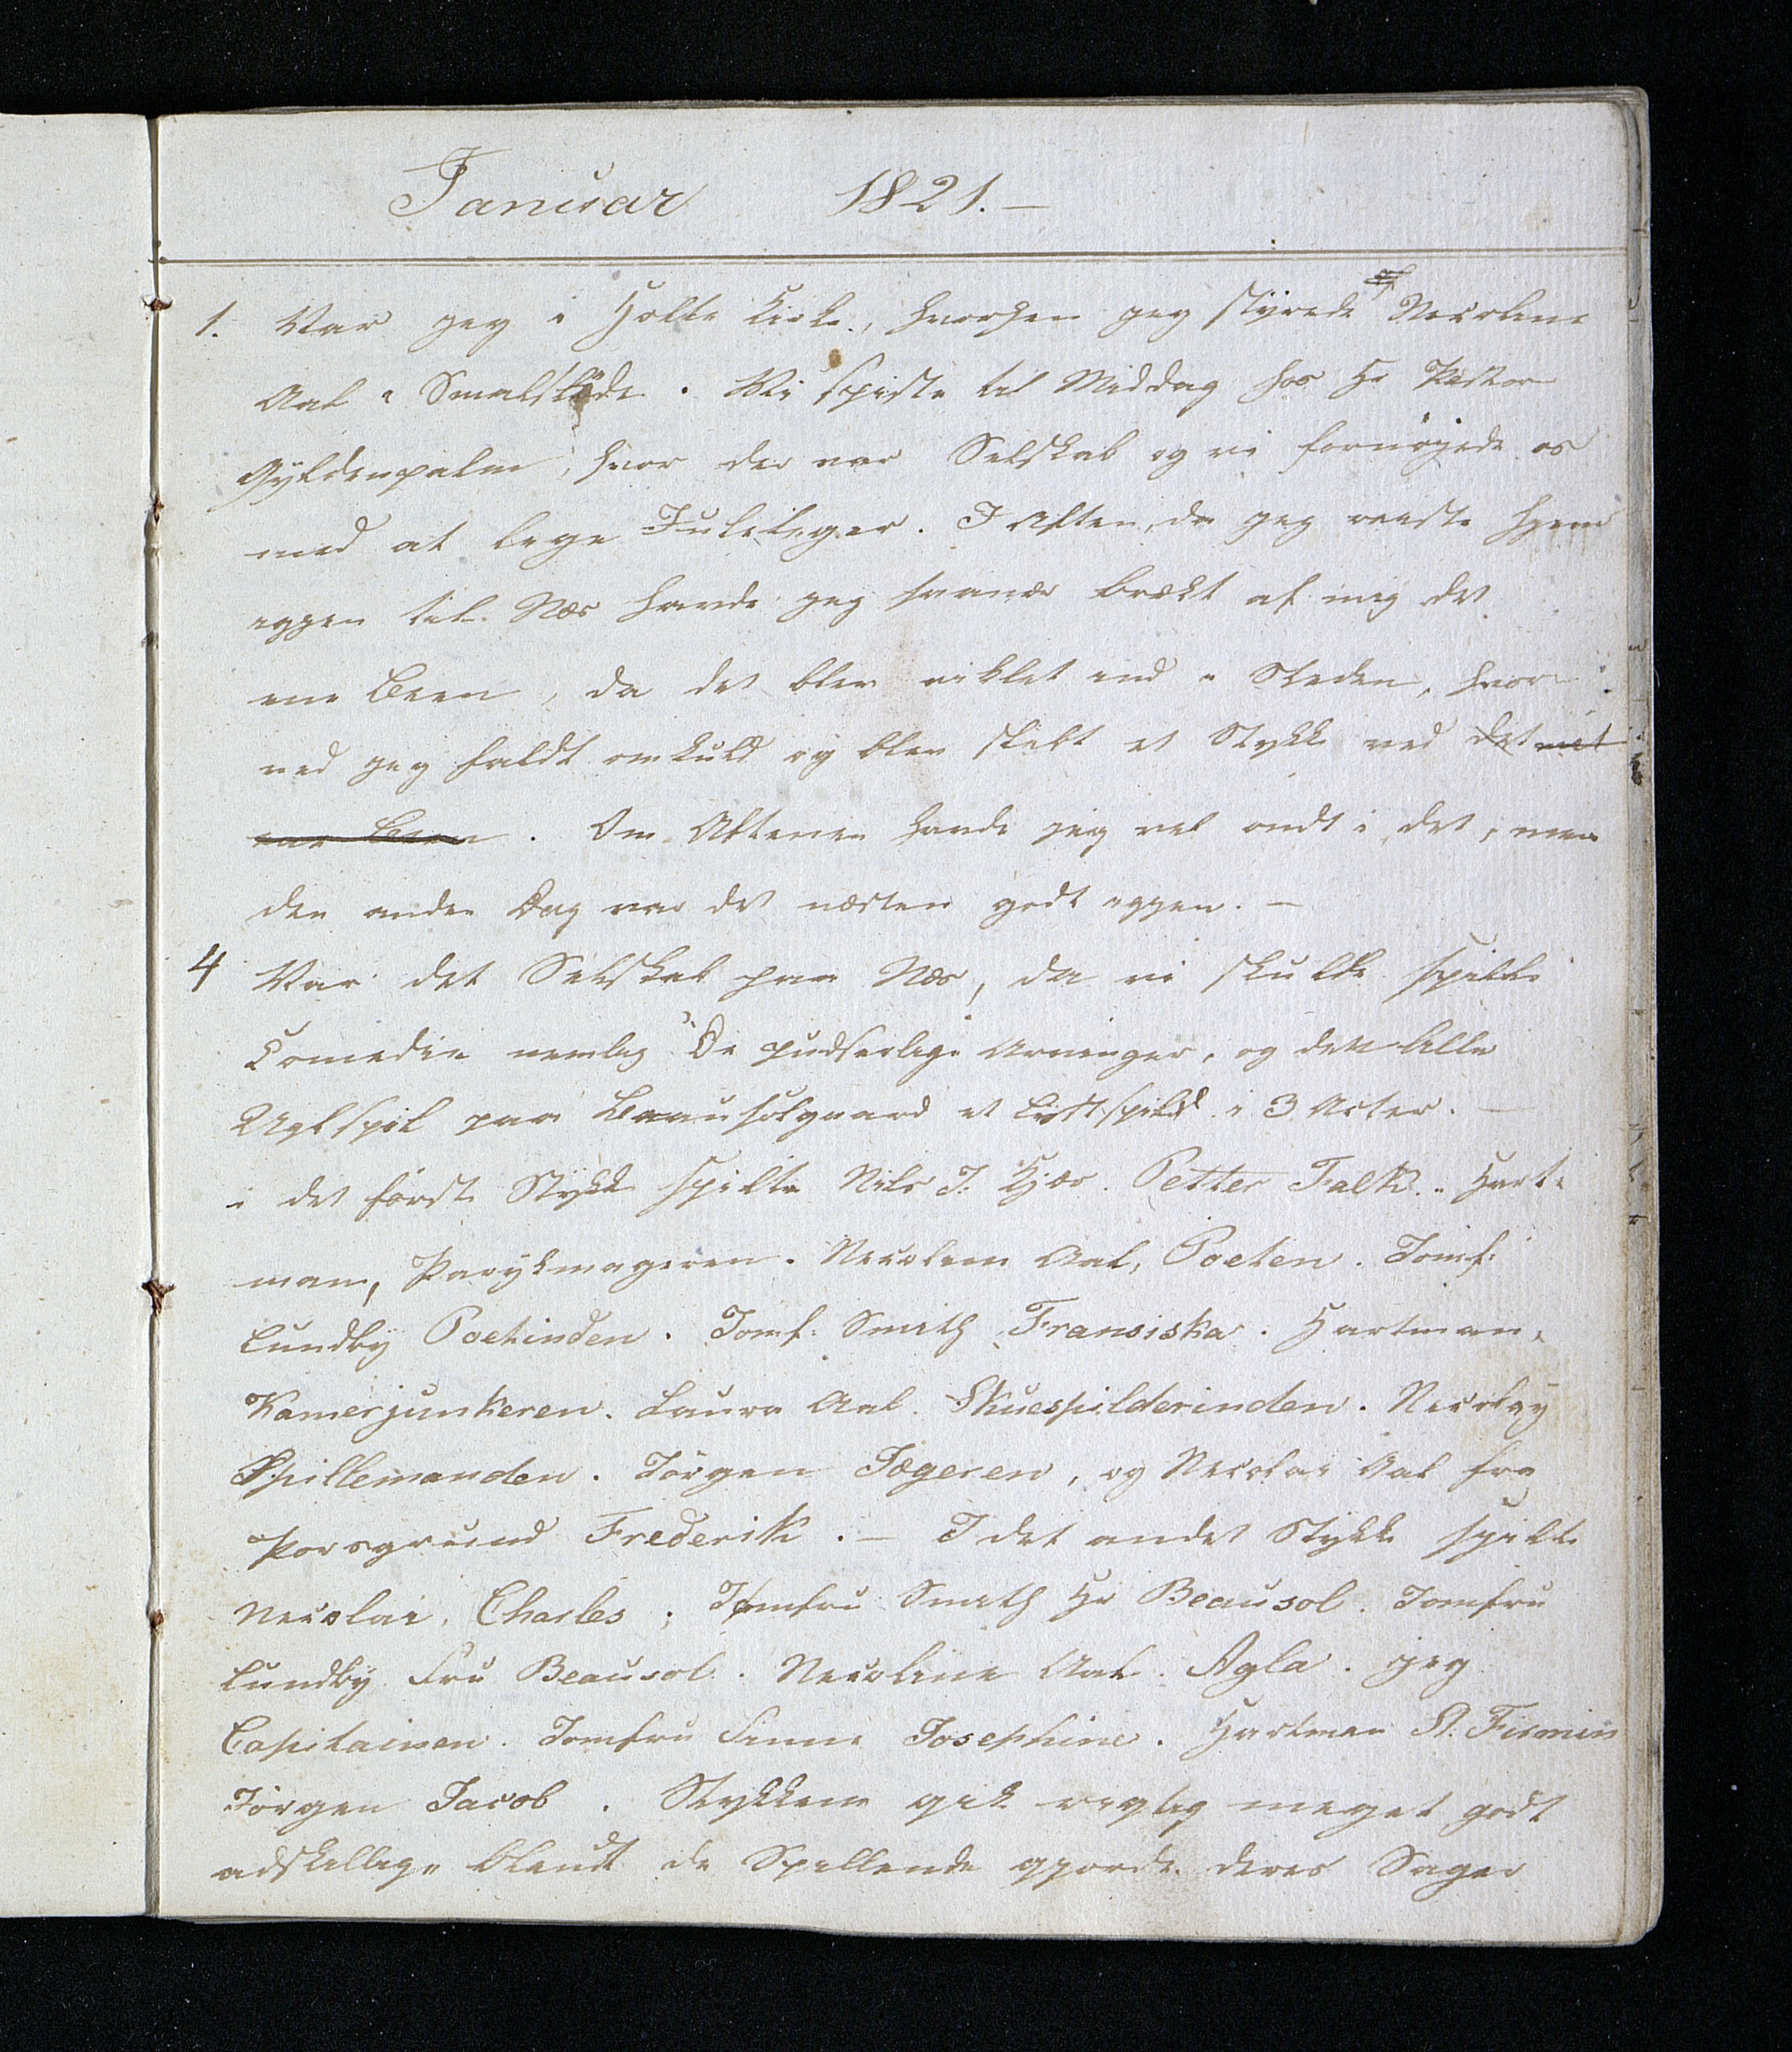 Januar 1821.–
1. Var jeg i Holte Kirke, hvorhen jeg styrede Nicoline
Aal i Smalslæde. Vi spiste til Middag hos Hr Pastor
Gyldenpalm, hvor der var Selskab og vi fornøyede os
med at lege Juleleger. I Aften, da jeg reiste hjem
igjen til Næs havde jeg saanær brækt af mig det
ene Been, da det blev viklet ind i Sleden, hvor
ved jeg faldt omkuld og blev slebt et Stykke ved det mit
ene Been. Om Aftenen havde jeg vel ondt i det, men
den anden Dag var det næsten godt igjen. –
4 Var det Selskab paa Næs, da vi skulde spille
Comedie nemlig "De pudserlige Arvinger, og det lille
Uglspil paa Beausolgaard et Lystspild i 3 Acter. –
i det første Stykke spilte Nils J. Kjær. Petter Falk. Hart-
man, Parykmageren. Nicoline Aal, Poeten. Jomf:
Lundby Poetinden. Jomf: Smith, Fransiska. Hartman,
Kamerjunkeren. Laura Aal. Skuespilderinden. Nicolay
Spillemanden. Jørgen Jægeren, og Nicolai Aal fra
Porsgrund Frederik. – I det andet Stykke spilte
Nicolai, Charles, Jomfru Smith Hr Beausol. Jomfru
Lundby Fru Beausol. Nicoline Aal. Agla. jeg
Capitainen. Jomfru Finne Josephine. Hartman St. Firmin
Jørgen Jacob. Stykkene gik rigtig meget godt
adskillige blandt de Spillende gjorde deres Sager